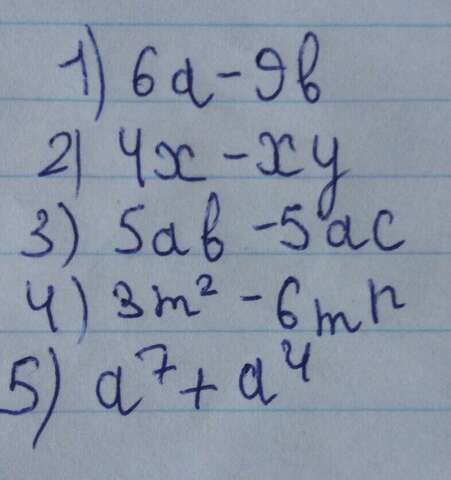 1) 6a - 9b
2) 4x - xy
3) 5ab - 5ac
4) 3m² - 6mn
5) a⁷ + a⁴